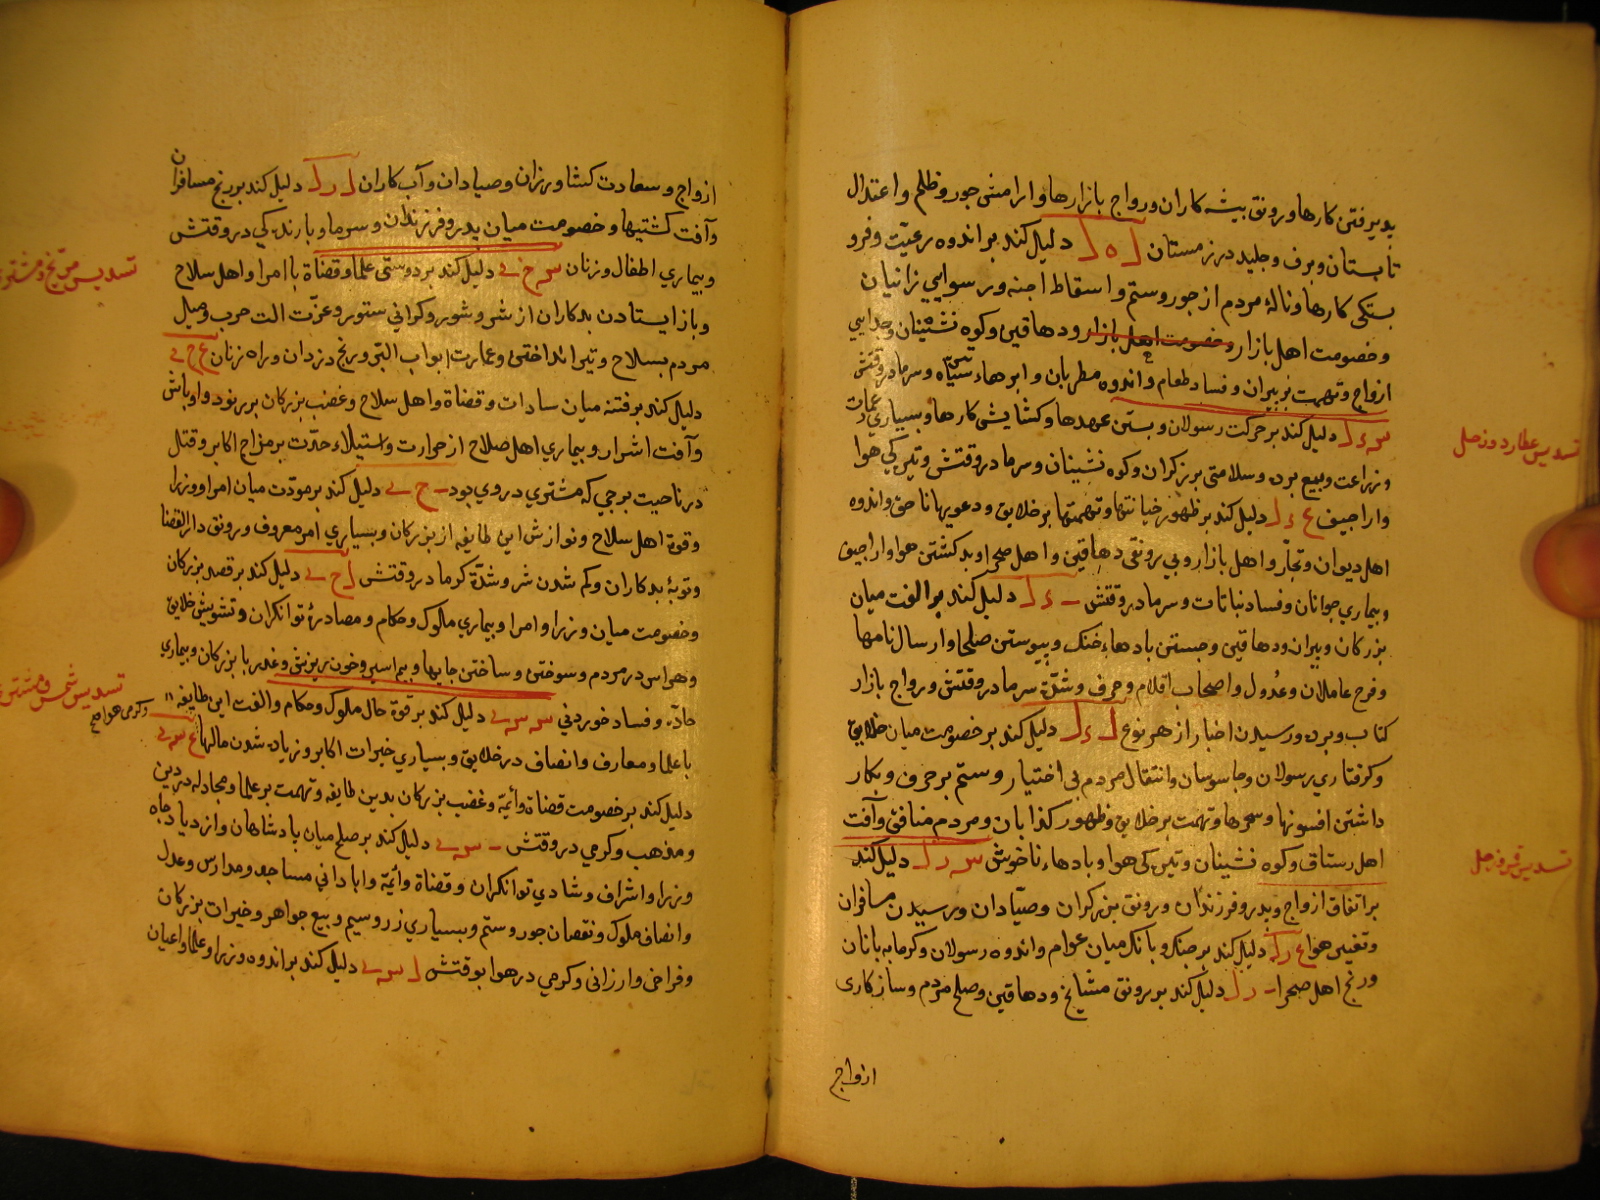 پدیرفتن کارها و رونق پیشه کاران و رواج بازارها و ارامش جور و ظلم و اعتدال
تابستان و برف و جلید در زمستان ل ه ل دلیل کند بر اندوه رعیّت و فرو
بستکی کارها و نالهٔ مردم از جور و ستم و اسقاط اجنه و رسوایی زانیان
و خصومت اهل بازار و خصومت اهل بازار و دهاقین و کوه نشینان و جدایی
ازواج و تهمت بر پیران و فساد طعام و اندوه مطربان و ابرهاء سیاه و سرما در وقتش
س ء ل دلیل کند بر حرکت رسولان و بستن عهدها و کشایش کارها و بسیاری عمارت
و زراعت و بیع برده و سلامتی برزکران و کوه نشینان و سرما در وقتش و تیرکی هوا
واراجیف ع ء ل دلیل کند بر ظهور خیانتها و تهمتها بر خلایق و دعویها ناحق و اندوه
اهل دیوان و تجّار و اهل بازار و بی رونقی دهاقین و اهل صحرا و بد کشتن هوا و اراجیف
و بیماری جوانان و فساد نباتات و سرما در وقتش ـ ء ل دلیل کند بر الفت میان
بزرکان و پیران و دهاقین و جستن بادهاء خنک و پیوستن صلحا و ارسال نامها
و فرح عاملان و عُدول و اصحاب اقلام و حرف و شدّة سرما در وقتش و رواج بازار
کتاب و برده و رسیدن اخبار از هر نوع ل ء ل دلیل کند بر خصومت میان خلایق
و کرفتاری رسولان و جاسوسان و انتقال مردم بی اختیار و ستم بر حرف و بکار
داشتن افسونها و سحرها و تهمت بر خلایق و ظهور کذابان و مردم منافق و آفت
اهل رستاق و کوه نشینان و تیرکی هوا و بادهاء ناخوش س ر ل دلیل کند
بر اتفاق ازواج و پدر و فرزندان و رونق برزکران و صیّادان و رسیدن مسافران
و تغییر هوا ع ر ل دلیل کند بر جنک و بانک میان عوام و اندوه رسولان و کرمابه بانان
و رنج اهل صحرا ـ ر ل دلیل کند بر رونق مشایخ و دهاقین و صلح مردم و سازکاری
ازواج
تسدیس عطارد و زحل
تسدیس قمر و زحل
ازواج و سعادت کشاورزان و صیادان و آب کاران ل ر ل دلیل کند بر رنج مسافران
و آفت کشتیها و خصومت میان پدر و فرزندان و سرما و بارندکی در وقتش
و بیماری اطفال و زنان س خ ی دلیل کند بر دوستی علما و قضاة با امرا و اهل سلاح
و باز ایستادن بدکاران از شر و شور و کرانی ستور و عزّت الت حرب و میل
مردم بسلاح و تیر انداختن و عمارت ابواب البر و رنج دزدان و راه زنان ع خ ی
دلیل کند بر فتنه میان سادات و قضاة و اهل سلاح و غضب بزرکان بر رنود و اوباش
و آفت اشرار و بیماری اهل صلاح از حرارت و استیلاء حدّت بر مزاج اکابر و قتال
در ناحیت برجی که مشتری در وی بود ـ خ ی دلیل کند بر مودّت میان امرا و وزرا
و قوة اهل سلاح و نوازش این طایفه از بزرکان و بسیاری امر معروف و رونق دار القضا
و توبهٔ بدکاران و کم شدن شر و شدّة کرما در وقتش ل خ ی دلیل کند بر قصد بزرکان
و خصومت میان وزرا و امرا و بیماری ملوک و حکام و مصادرهٔ توانکران و تشویش خلایق
و هراس در مردم و سوختن و ساختن جایها و بیم اسیر و خون ریزش و غدر با بزرکان و بیماری
حادّه و فساد خوردنی س س ی دلیل کند بر قوة حال ملوک و حکام و الفت این طایفه
با علما و معارف و انصاف در خلایق و بسیاری خیرات اکابر و زیاده شدن مالها ع س ی
دلیل کند بر خصومت قضاة و أئمّه و غضب بزرکان بدین طایفه و تهمت بر علما و مجادله در دین
و مذهب و کرمی در وقتش ـ س ی دلیل کند بر صلح میان پادشاهان و ازدیاد جاه
وزرا و اشراف و شادی توانکران و قضاة و أئمّه و ابادانی مساجد و مدارس و عدل
و انصاف ملوک و نقصان جور و ستم و بسیاری زر و سیم و بیع جواهر و خیرات بزرکان
و فراخی و ارزانی و کرمی در هوا بوقتش ل س ی دلیل کند بر اندوه وزرا و علما و اعیان
تسدیس مرّیخ و مشتری
تسدیس شمس و مشتری
و کرمی هوا